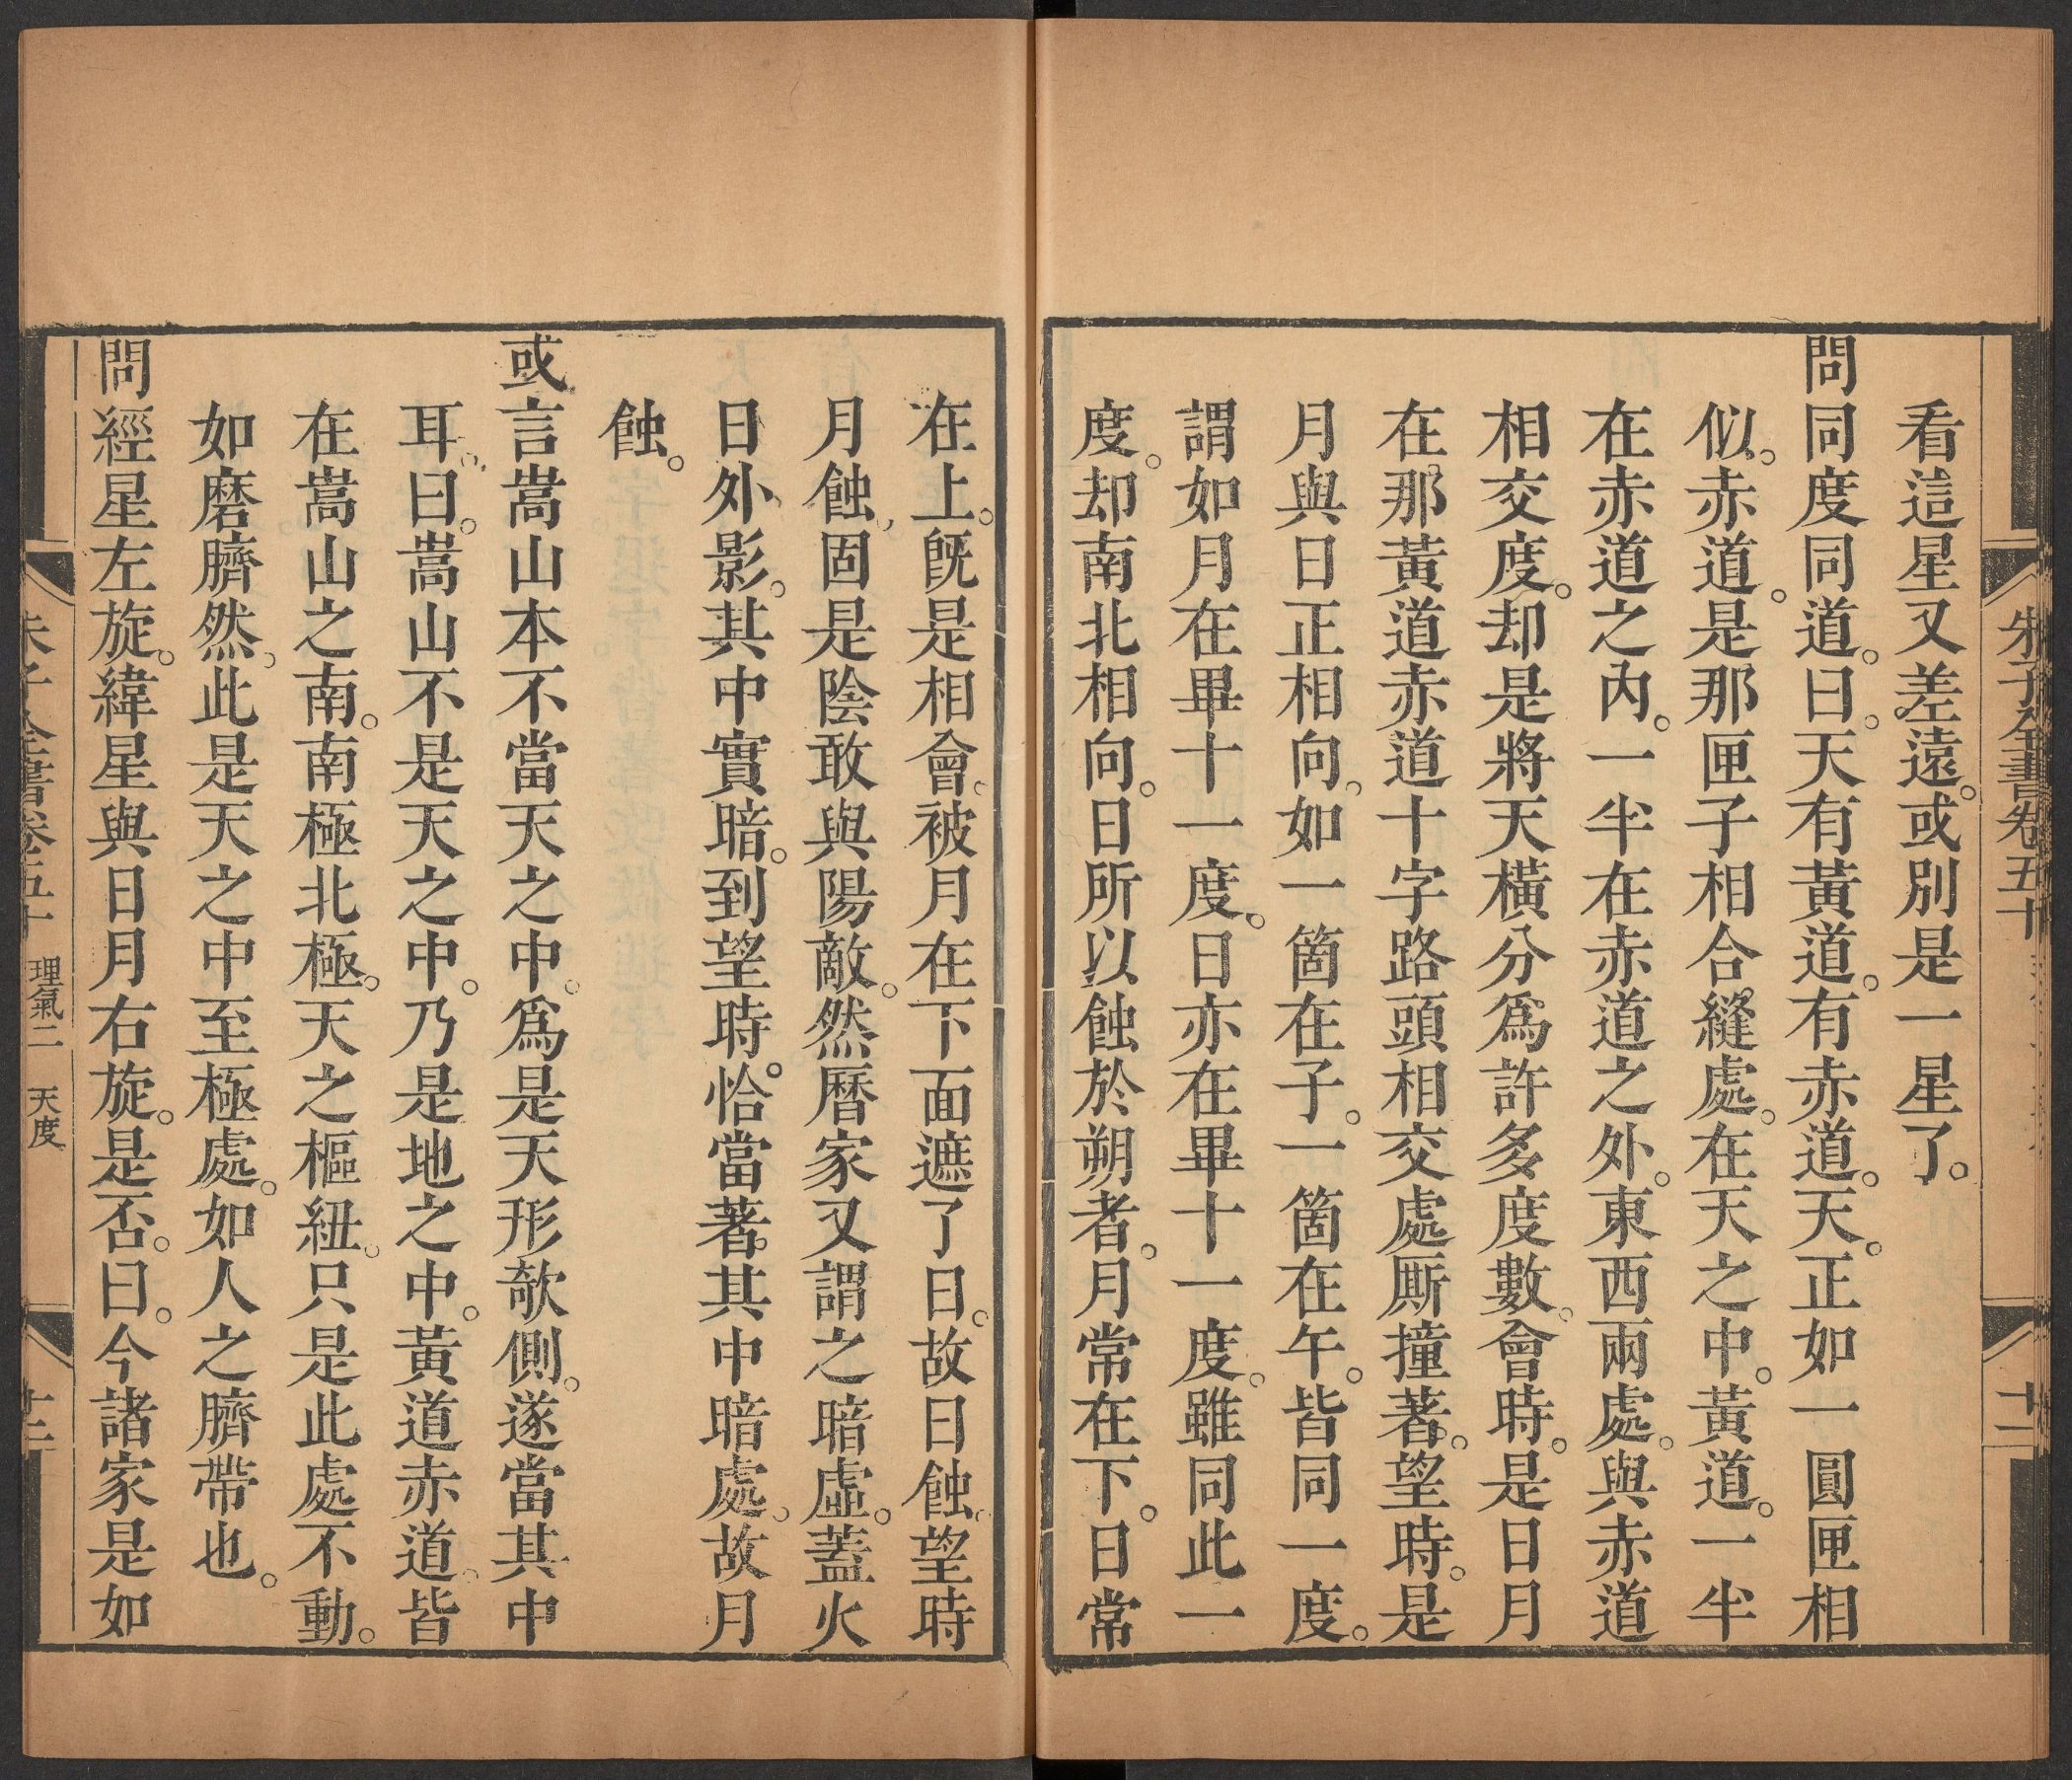 朱子全書卷五十
十二
看這星又差遠。或別是一星了。
問同度同道。曰。天有黃道。有赤道。天。正如一圓匣相
似。赤道。是那匣子相合縫處。在天之中。黃道。一半
在赤道之內。一半在赤道之外。東西兩處。與赤道
相交度。却是將天橫分爲許多度數。會時。是日月
在那黃道赤道十字路頭相交處厮撞著。望時。是
月與日正相向。如一箇在子。一箇在午。皆同一度。
謂如月在畢十一度。日亦在畢十一度。雖同此一
度。却南北相向。日所以蝕於朔者。月常在下。日常
在上。旣是相會。被月在下面遮了日。故日蝕。望時
月蝕。固是陰敢與陽敵。然曆家又謂之暗虛。蓋火
日外影。其中實暗。到望時。恰當著其中暗處。故月
蝕。
或言嵩山本不當天之中。爲是天形欹側。遂當其中
耳。曰。嵩山不是天之中。乃是地之中。黃道赤道。皆
在嵩山之南。南極北極。天之樞紐。只是此處不動。
如磨臍然。此是天之中至極處。如人之臍帶也。
問經星左旋。緯星與日月右旋。是否。曰。今諸家是如
朱子全書卷五十 理氣二 天度
十三